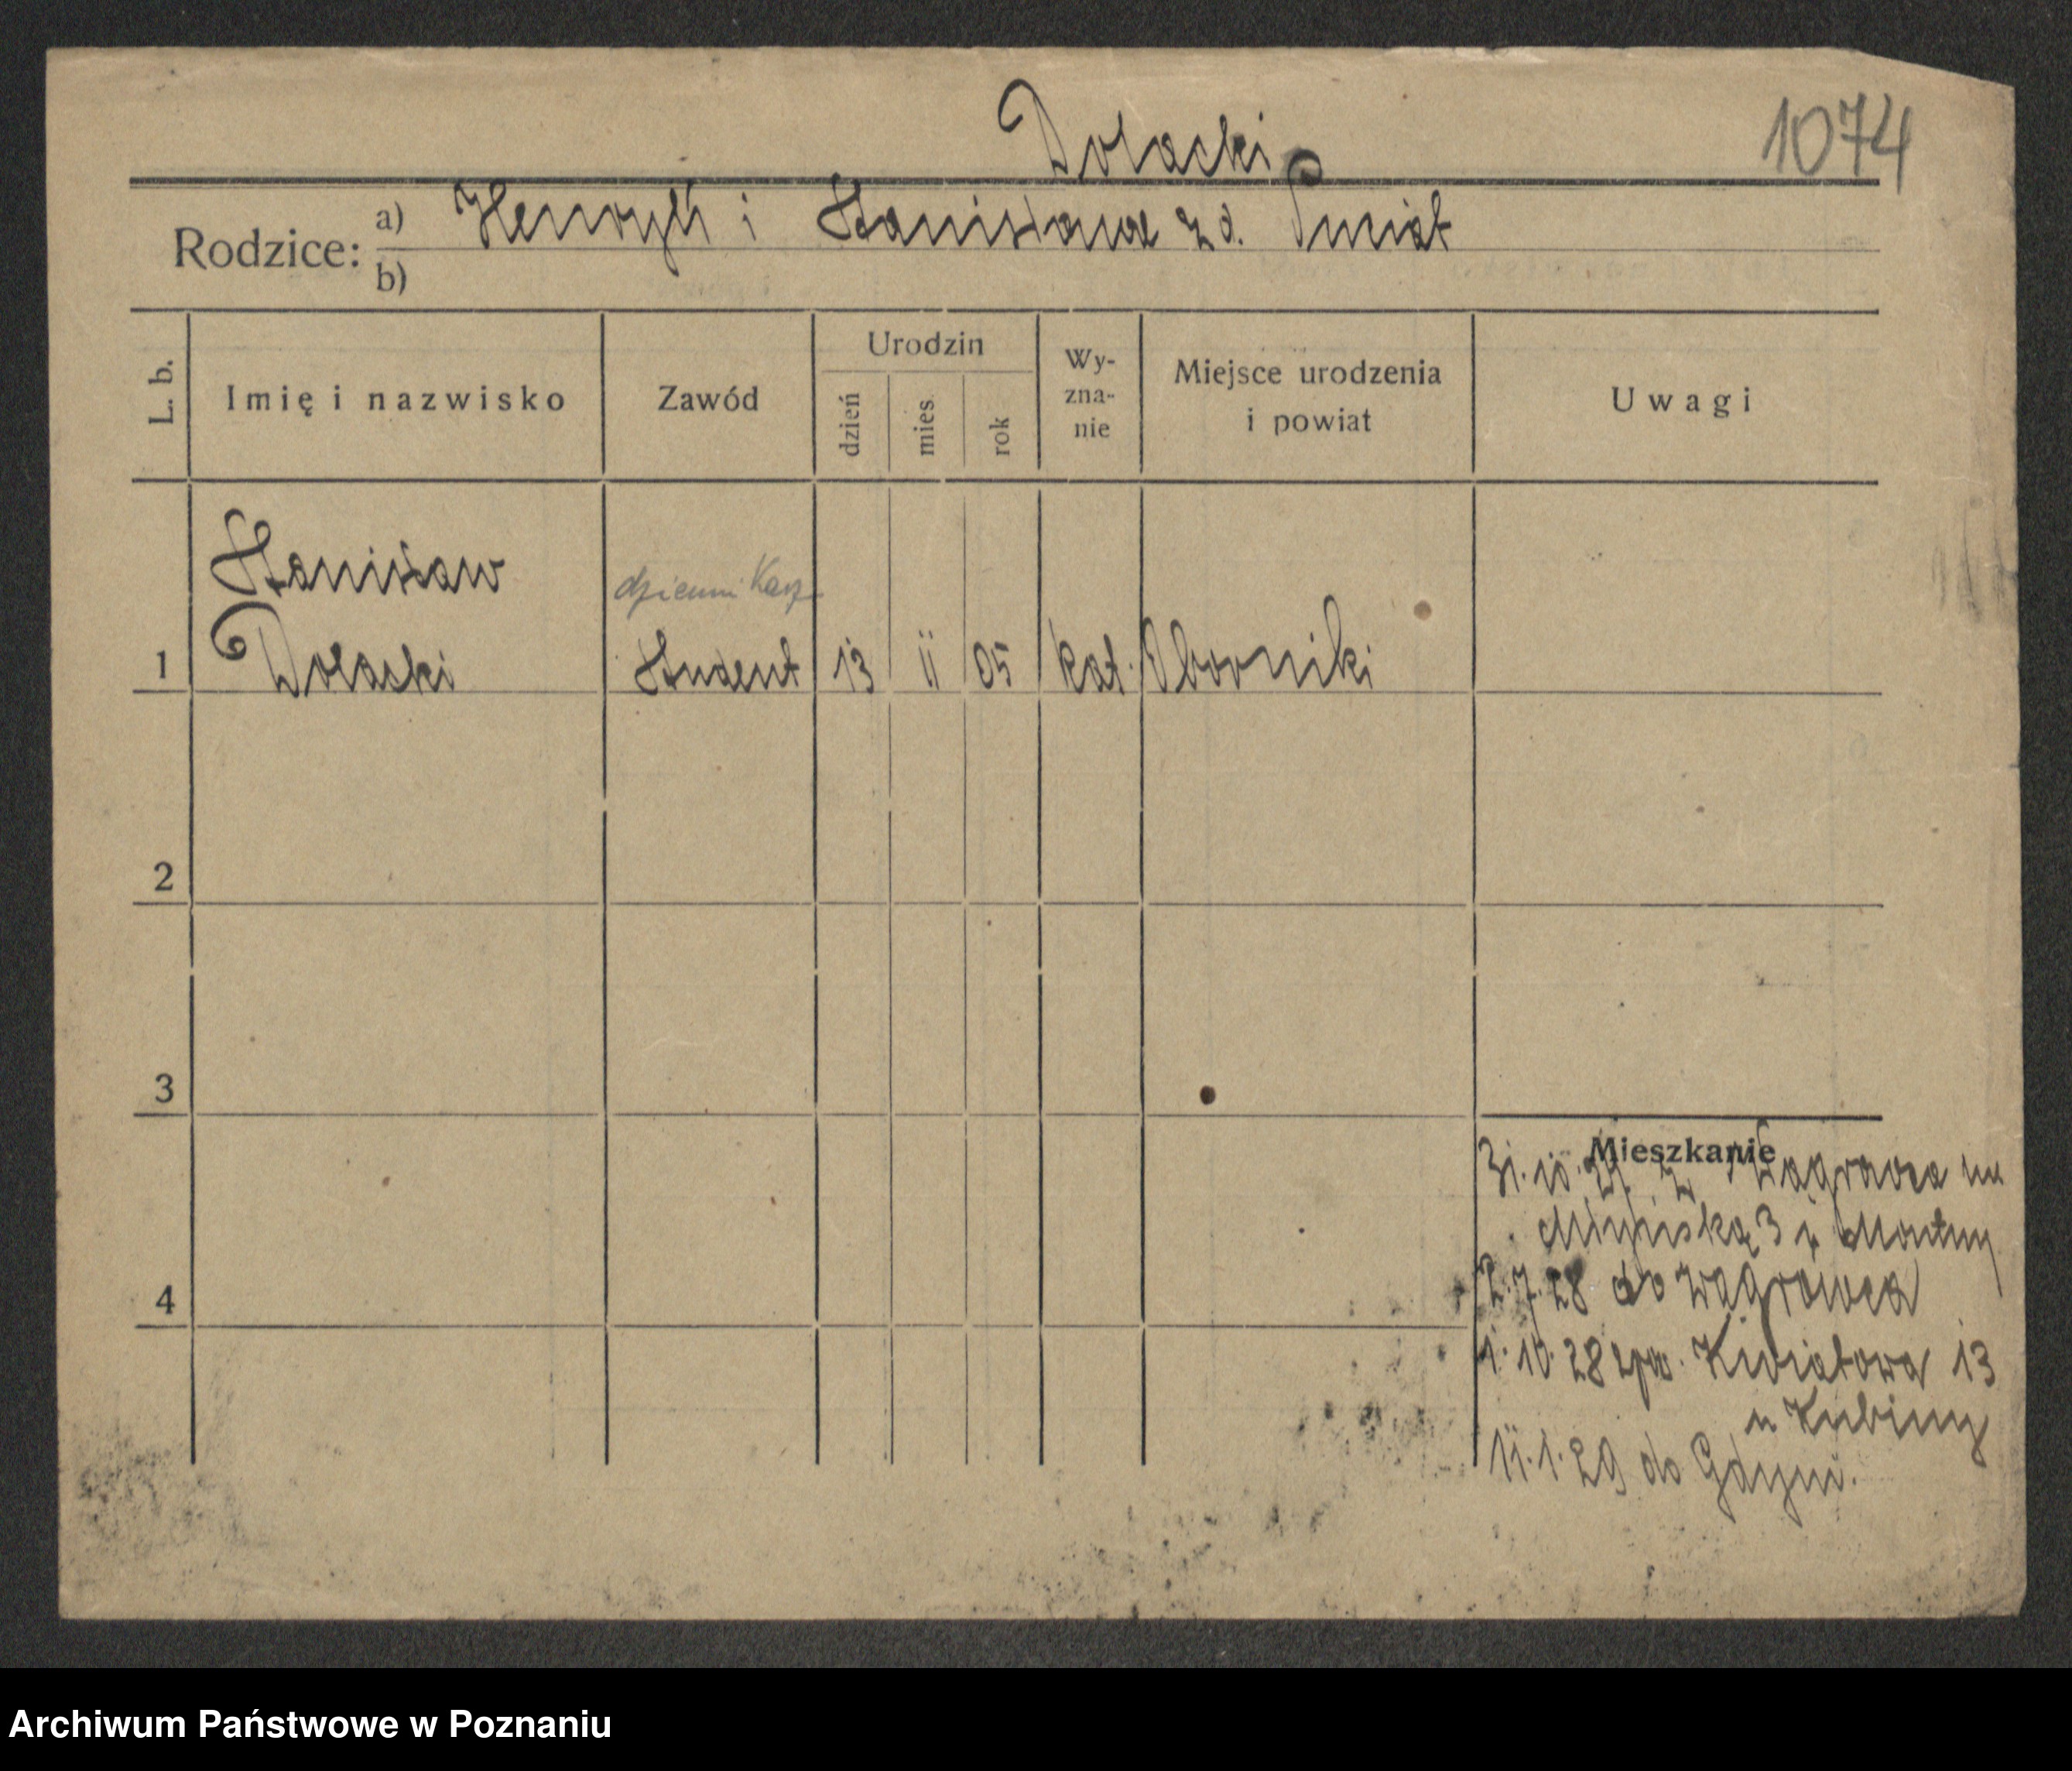 Dolacki
1074
Rodzice: a) Henryk i Stanisława z d. Śmiat
b)
L. b.
Imię i nazwisko
Zawód
Urodzin
dzień
mies.
rok
Wy-
zna-
nie
Miejsce urodzenia
i powiat
Uwagi
Stanisław
dziennikarz
1 Dolacki Student 13 11 05 kat. Oborniki
2
3
Mieszkanie
31. 10. 27. z Wągrowca na
3 u
4
2. 7. 28 do Wągrowca
1. 10. 28 zpw. Kwiatowa 13
u Kubiny
11. 1. 29 do Gdyni.
Archiwum Państwowe w Poznaniu